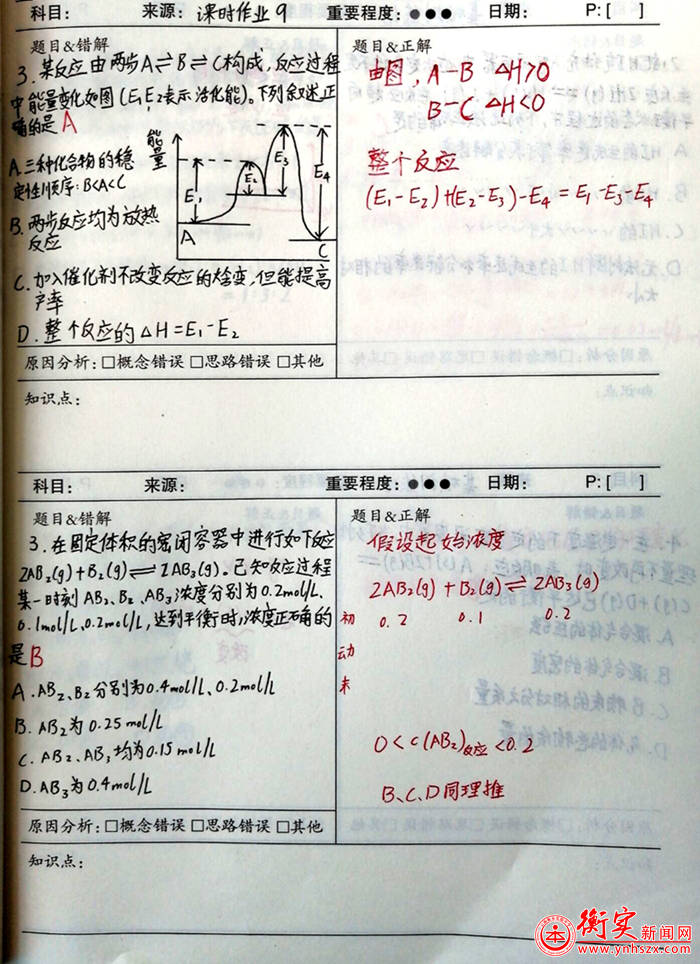 科目： 来源：课时作业9 重要程度：●●● 日期： P:[ ]
题目&错解
3.某反应由两步A⇌B⇌C构成,反应过程
中能量变化如图(E₁E₂表示活化能)。下列叙述正
确的是 A
A.三种化合物的稳
定性顺序:B<A<C
B.两步反应均为放热
反应
能量
E₁
E₂
E₃
E₄
A
C
C.加入催化剂不改变反应的焓变,但能提高
产率
D.整个反应的△H=E₁-E₂
题目&正解
由图, A-B △H>0
B-C △H<0
整个反应
(E₁-E₂)+(E₂-E₃)-E₄=E₁-E₃-E₄
原因分析：□概念错误 □思路错误 □其他
知识点：
科目： 来源： 重要程度：●●● 日期： P:[ ]
题目&错解
3.在固定体积的密闭容器中进行如下反应
2AB₂(g)+B₂(g)⇌2AB₃(g).已知反应过程
某一时刻AB₂、B₂、AB₃浓度分别为0.2mol/L、
0.1mol/L、0.2mol/L,达到平衡时,浓度正确的
是B
A.AB₂、B₂分别为0.4mol/L、0.2mol/L
B.AB₂为0.25mol/L
C.AB₂、AB₃均为0.15mol/L
D.AB₃为0.4mol/L
题目&正解
假设起始浓度
2AB₂(g)+B₂(g)⇌2AB₃(g)
初 0.2 0.1 0.2
动
末
0<c(AB₂)反应<0.2
B、C、D同理推
原因分析：□概念错误 □思路错误 □其他
知识点：
衡实新闻网
www.ynhszx.com